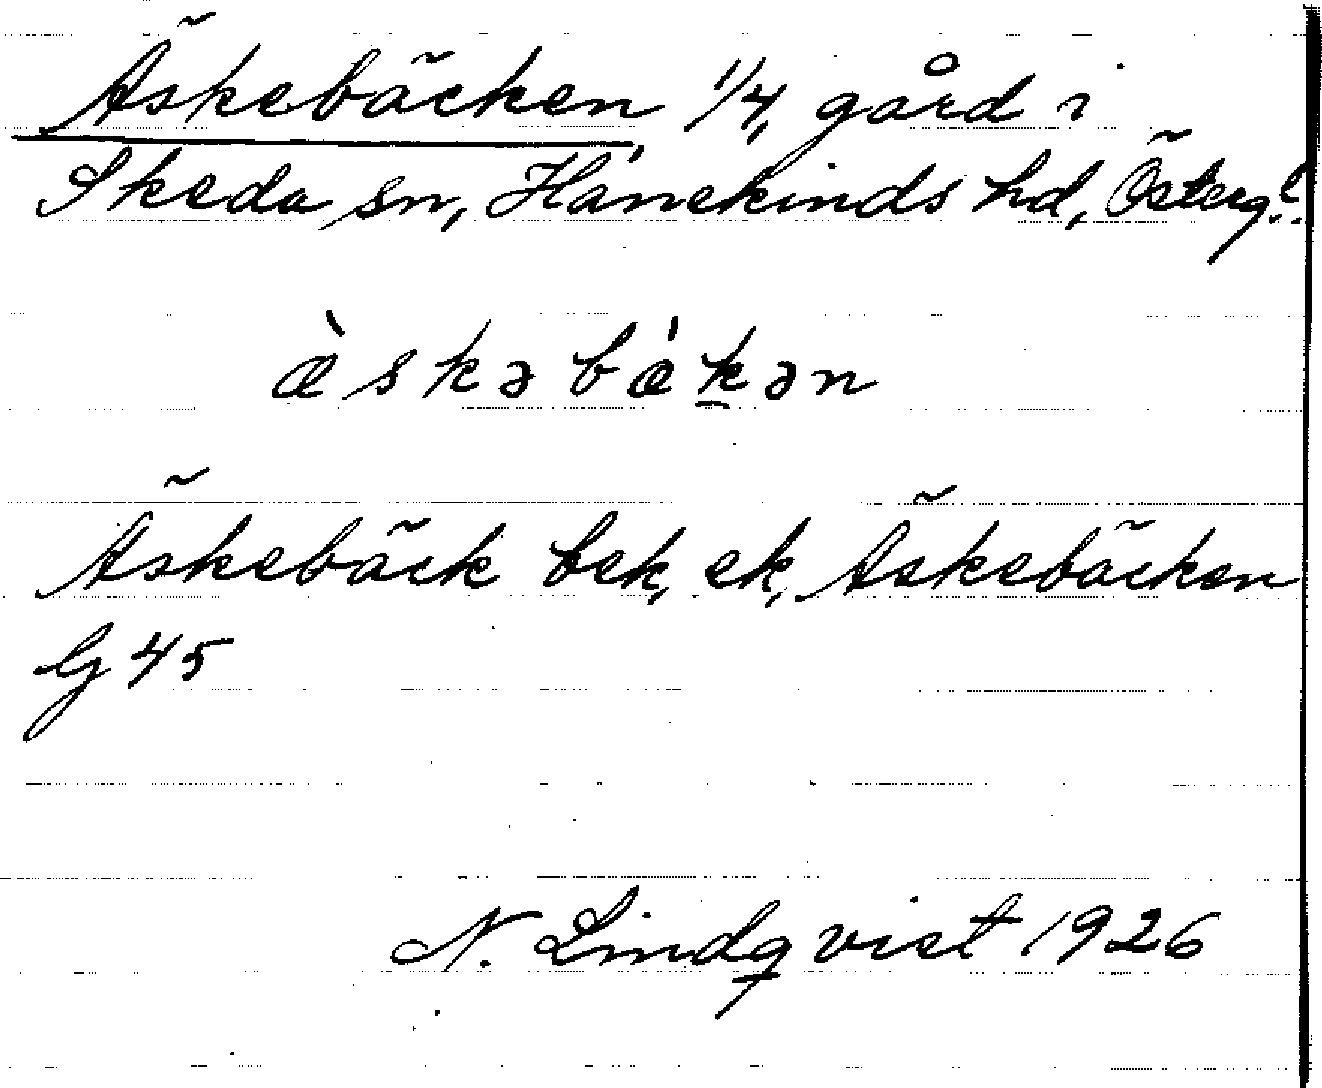 Äskebäcken 1/4, gård i
Skeda sn, Hanekinds hd, Österg.
æ̀skəbǽk̠ən
Äskebäck bek, ek, Äskebäcken
G 45
N. Lindqvist 1926